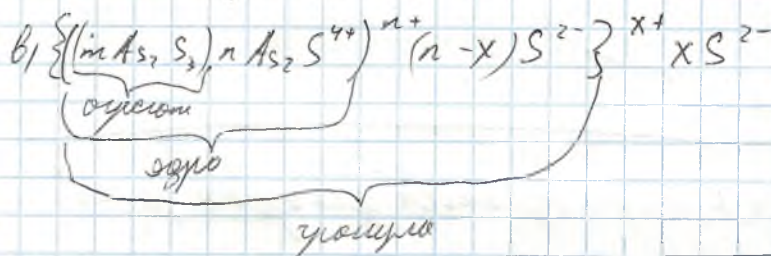 в) {((m As₂ S₃) n As₂ S⁴⁺)ⁿ⁺ (n - x) S²⁻}ˣ⁺ x S²⁻
агрегат
ядро
гранула